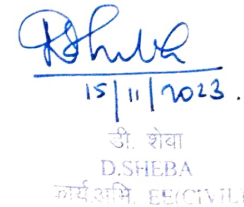 DSheba
15/11/2023.
डी. शेबा
D.SHEBA
कार्य.अभि. EE(CIVIL)